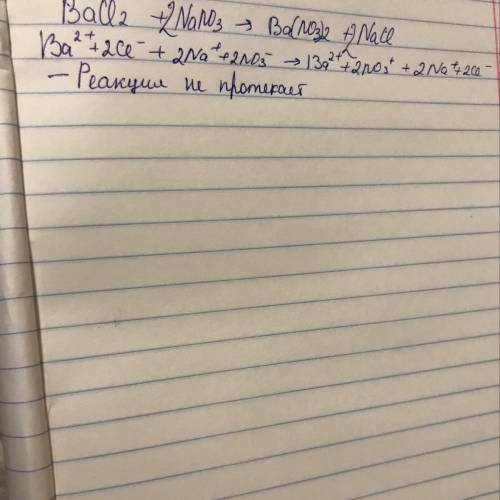 BaCl2 + 2NaNO3 → Ba(NO3)2 + 2NaCl
Ba²⁺ + 2Cl⁻ + 2Na⁺ + 2NO3⁻ → Ba²⁺ + 2NO3⁺ + 2Na⁺ + 2Cl⁻
— Реакция не протекает